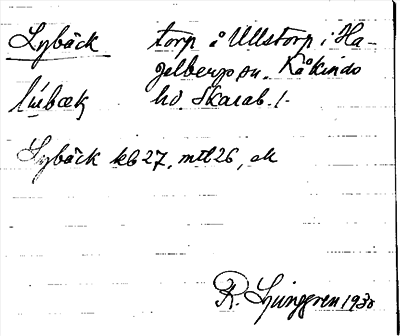 Lybäck torp å Ullstorp i Ha-
gelbergs sn. Kåkinds
lúbæk hd Skarab. l.
Lybäck kb 27, mtl 26, ek
R. Ljunggren 1930